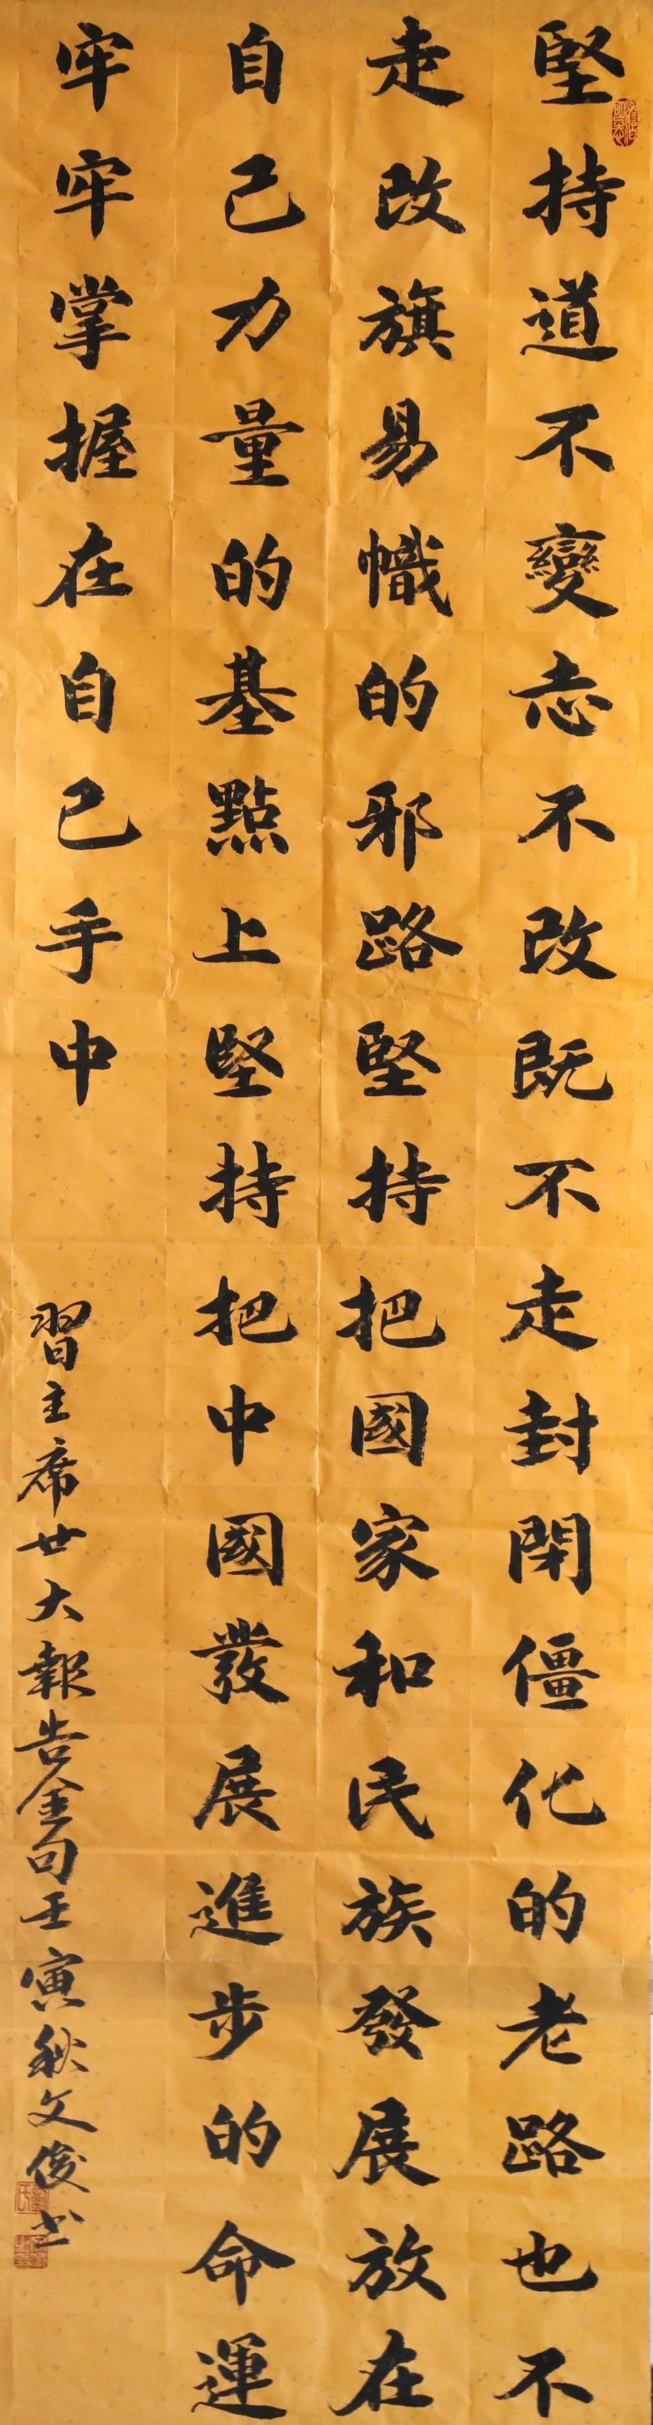 堅持道不變志不改既不走封閉僵化的老路也不
走改旗易幟的邪路堅持把國家和民族發展放在
自己力量的基點上堅持把中國發展進步的命運
牢牢掌握在自己手中
習主席廿大報告金句壬寅秋文俊书